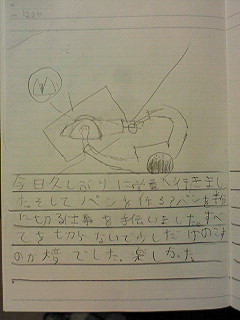 今日久しぶりに学童へ行きまし
たそしてパンを作る?パンを
に切る仕事を手伝いました。すべ
てを切らないで少しだけのす
のが大変でした。楽しかった
。